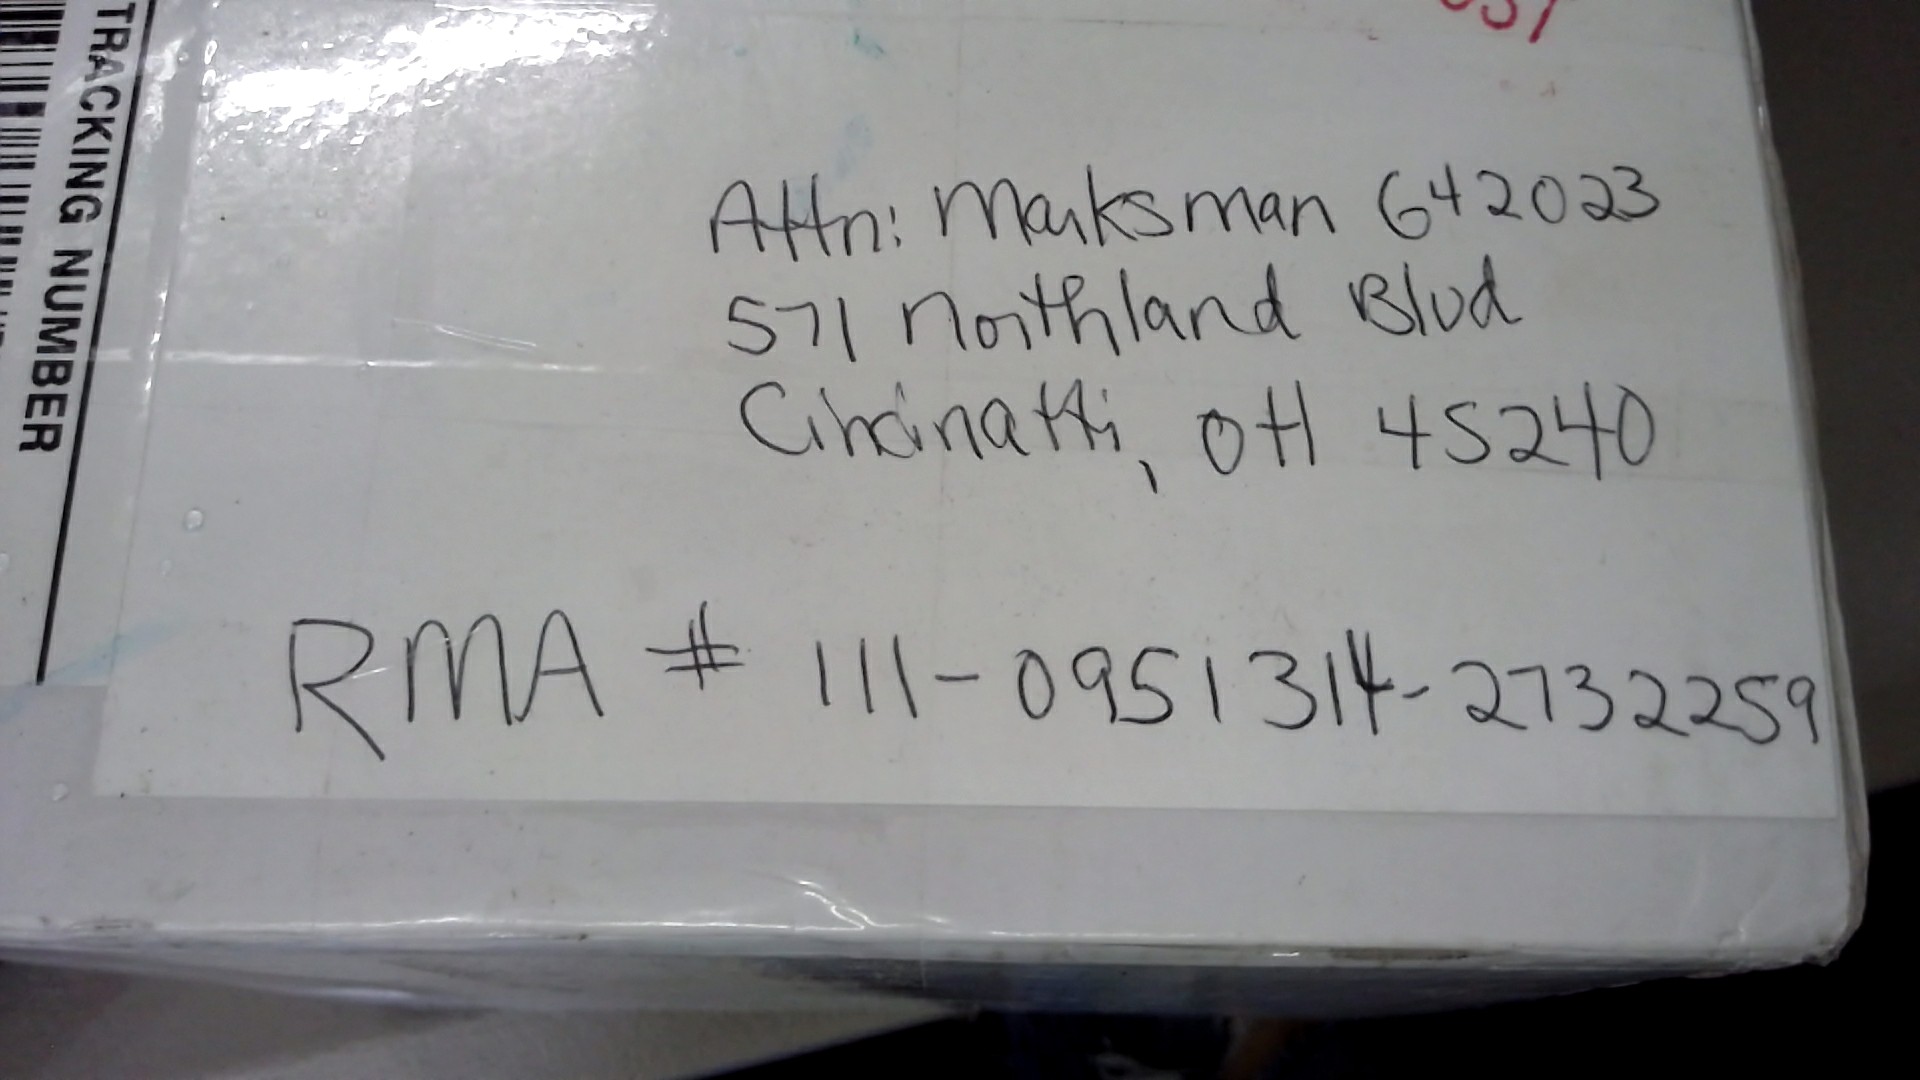 TRACKING NUMBER
Attn: Marksman 642023
571 Northland Blvd
Cincinatti, OH 45240
RMA # 111-0951314-2732259